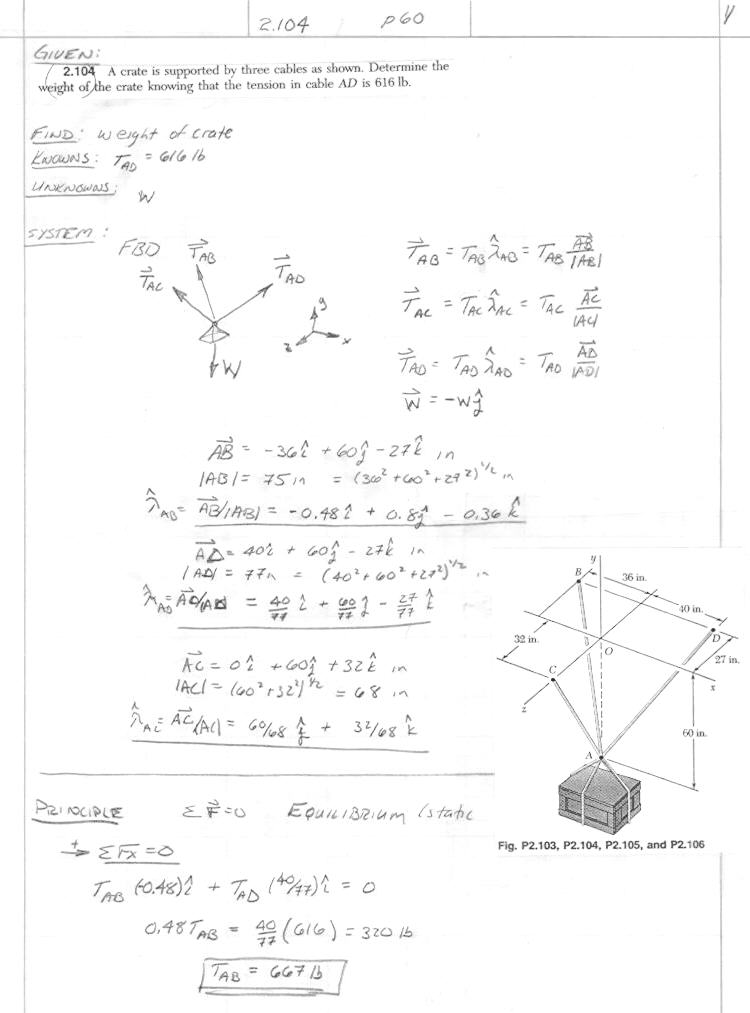 2.104 p60
GIVEN:
2.104 A crate is supported by three cables as shown. Determine the
weight of the crate knowing that the tension in cable AD is 616 lb.
FIND: weight of crate
KNOWNS: T_AD = 616 lb
UNKNOWNS: W
SYSTEM:
FBD
T⃗_AB
T⃗_AC
T⃗_AD
y
z x
W⃗
T⃗_AB = T_AB λ̂_AB = T_AB A⃗B/|AB|
T⃗_AC = T_AC λ̂_AC = T_AC A⃗C/|AC|
T⃗_AD = T_AD λ̂_AD = T_AD A⃗D/|AD|
W⃗ = -Wĵ
A⃗B = -36î + 60ĵ - 27k̂ in
|AB| = 75 in = (36² + 60² + 27²)^1/2 in
λ̂_AB = A⃗B/|AB| = -0.48î + 0.8ĵ - 0.36k̂
A⃗D = 40î + 60ĵ - 27k̂ in
|AD| = 77in = (40² + 60² + 27²)^1/2 in
λ̂_AD = A⃗D/|AD| = 40/77 î + 60/77 ĵ - 27/77 k̂
A⃗C = 0î + 60ĵ + 32k̂ in
|AC| = (60² + 32²)^1/2 = 68 in
λ̂_AC = A⃗C/|AC| = 60/68 ĵ + 32/68 k̂
y
B
36 in.
40 in.
D
32 in.
O
27 in.
C
x
z
60 in.
A
Fig. P2.103, P2.104, P2.105, and P2.106
PRINCIPLE ΣF⃗=0 EQUILIBRIUM (static
+→ ΣFx = 0
T_AB (-0.48)î + T_AD (40/77)î = 0
0.48 T_AB = 40/77 (616) = 320 lb
T_AB = 667 lb